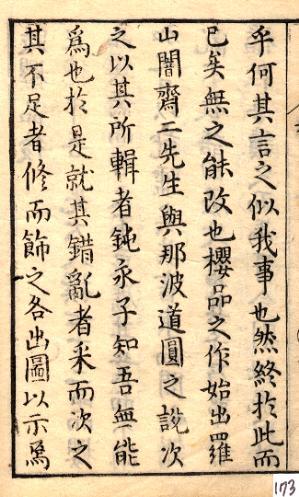 乎何其言之似我事也然終於此而
已矣無之能改也櫻品之作始出羅
山闇齋二先生與那波道圓之説次
之以其所輯者鈍永子知吾無能
爲也於是就其錯亂者采而次之
其不足者修而飾之各出圖以示爲
173